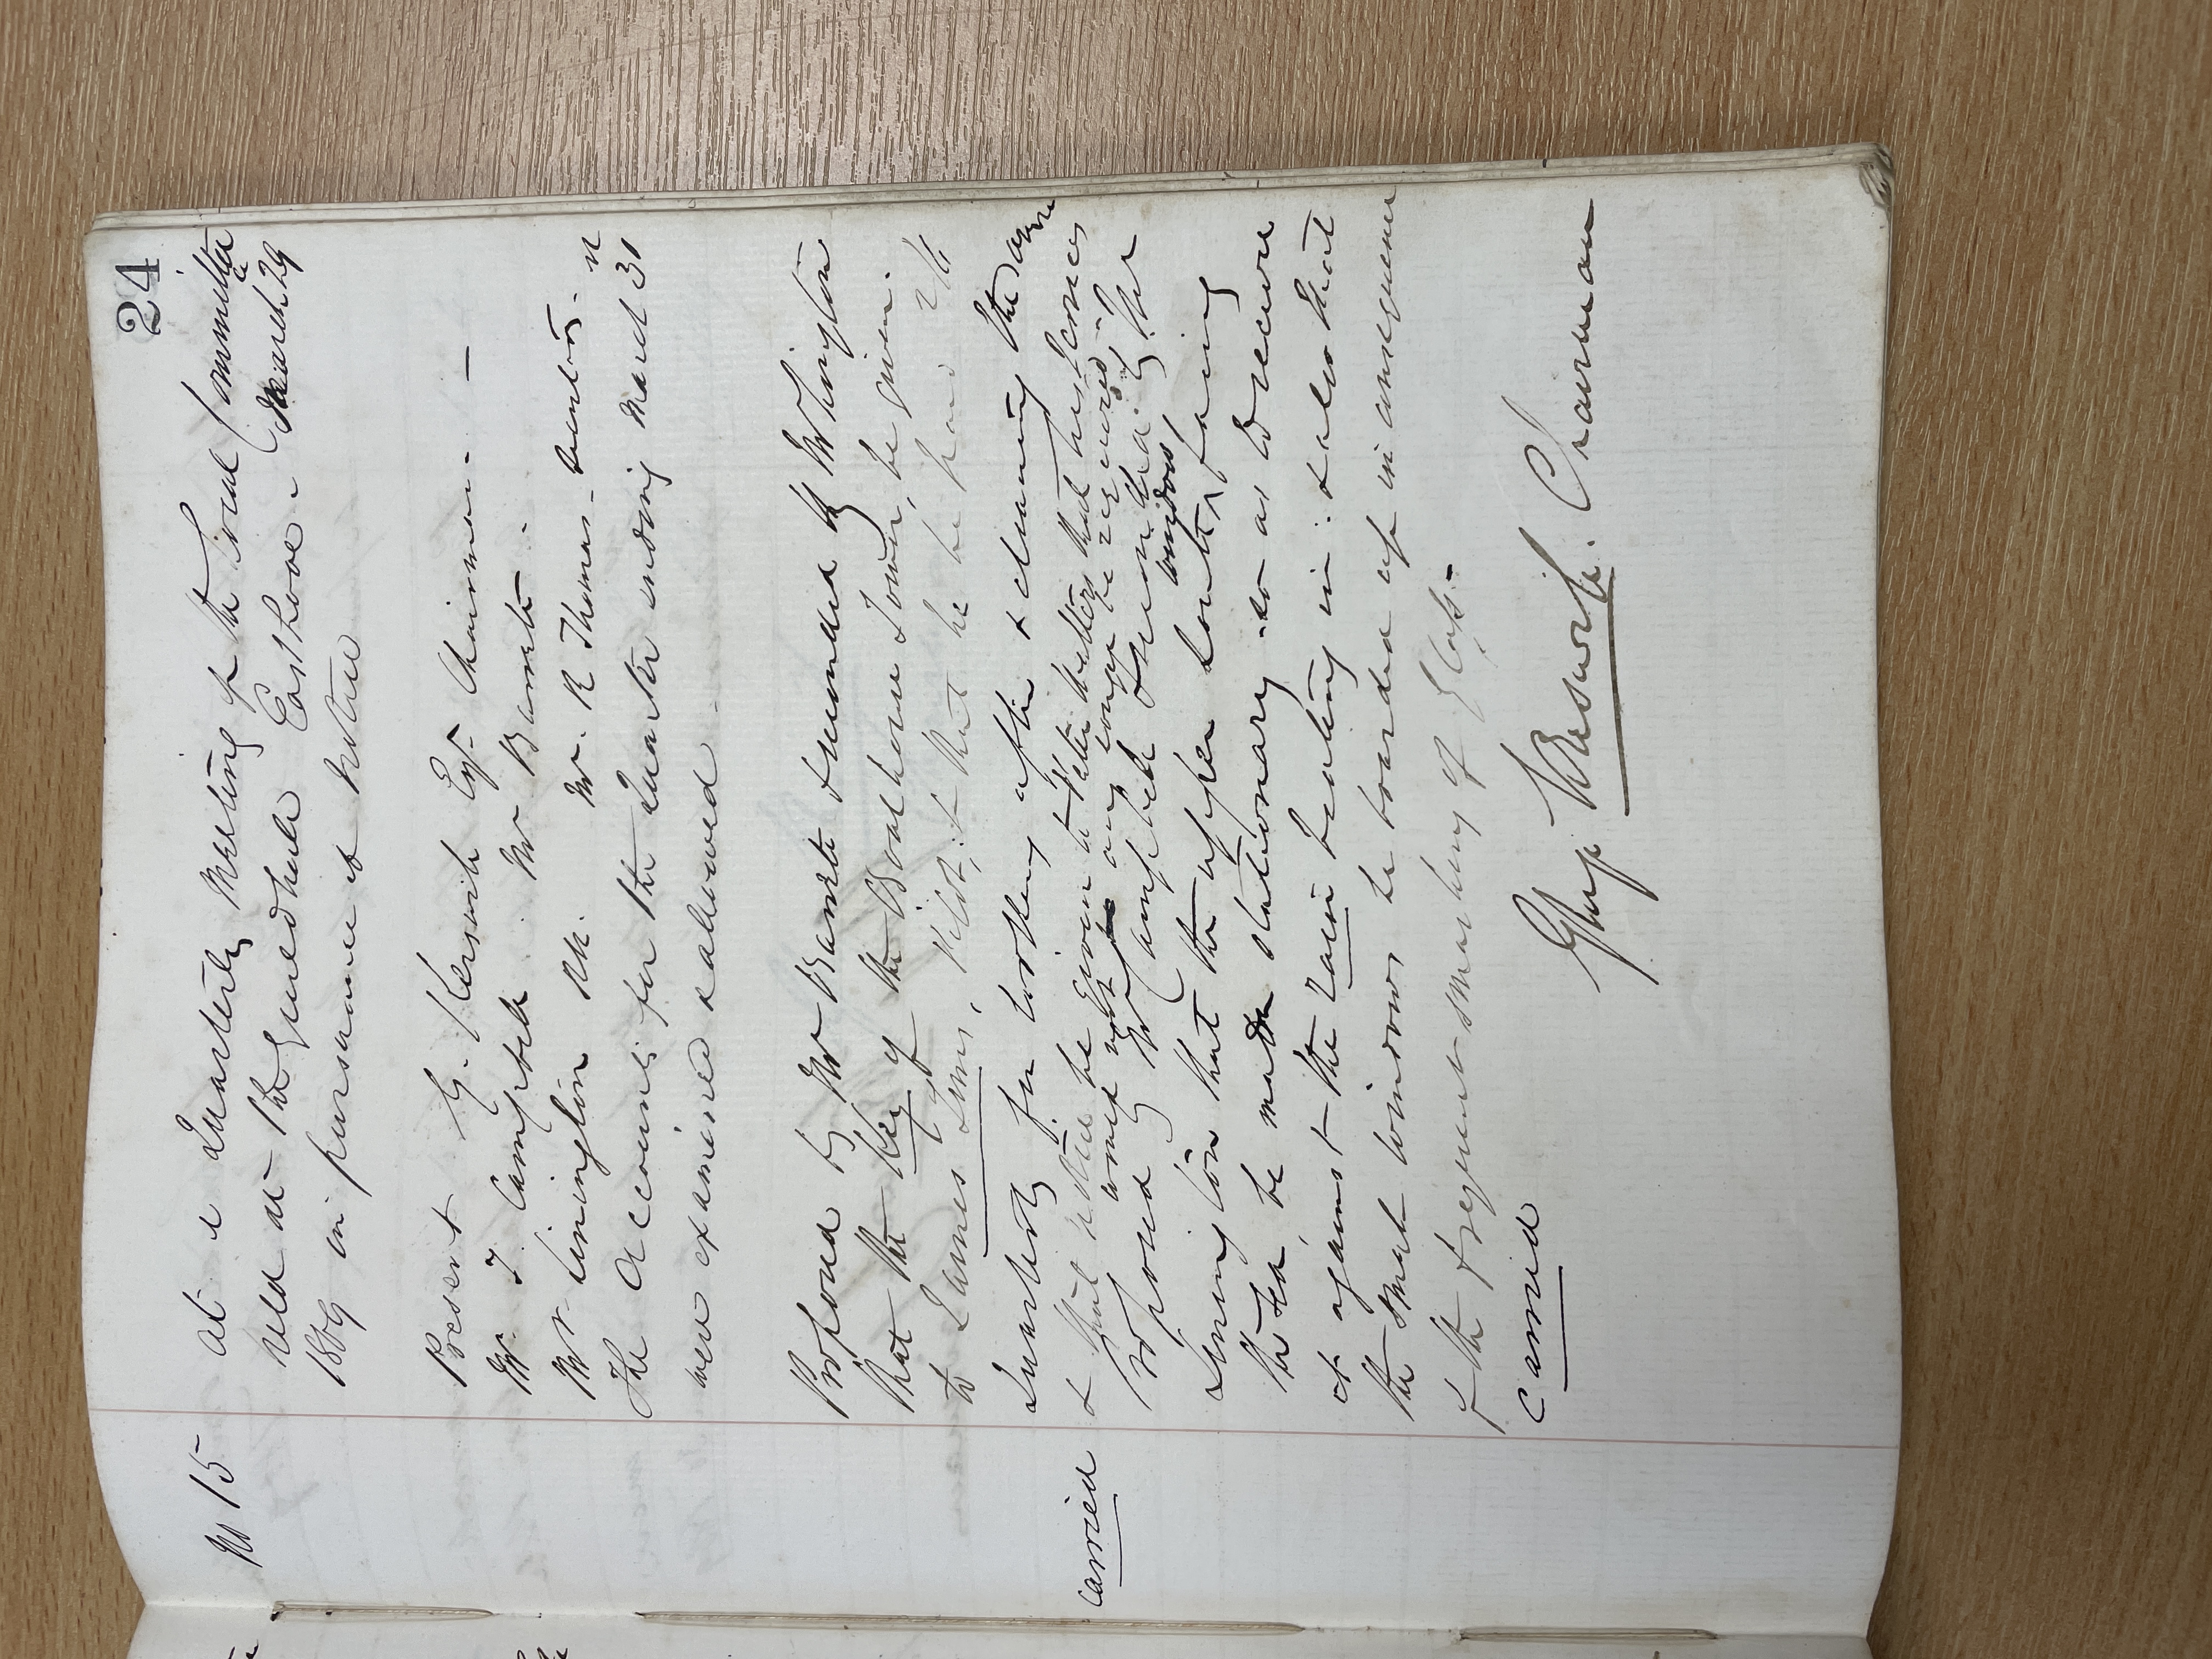 24
No 15 At a Quarterly Meeting of the Local Committee
held at the Guildhall East Looe - March 29
1869 in pursuance of notice
Present G. Keswick Esqr Chairman. -
Mr T. Campbell Mr Barrett.
Mr Linington RN. Mr. R Thomas - Secretary.
The Accounts for the Quarter ending March 31 st
were examined & allowed
Proposed by Mr Barrett & seconded by Mr Linington
that the Key of the Boathouse & Tower, be given
to James Sims, Pilot, & that he be paid 2/6
Quarterly for looking after & cleaning the same
carried & that notice be given to Peter that his services
would not any longer be required.
Proposed by Mr Campbell & seconded by Mr
Linington that the upper South windows facing
the Sea, be made stationary - so as to secure
it against the rain beating in: & also that
the small windows be boarded up in consequence
of the frequent smashing of Glass. -
carried
Keswick. Chairman